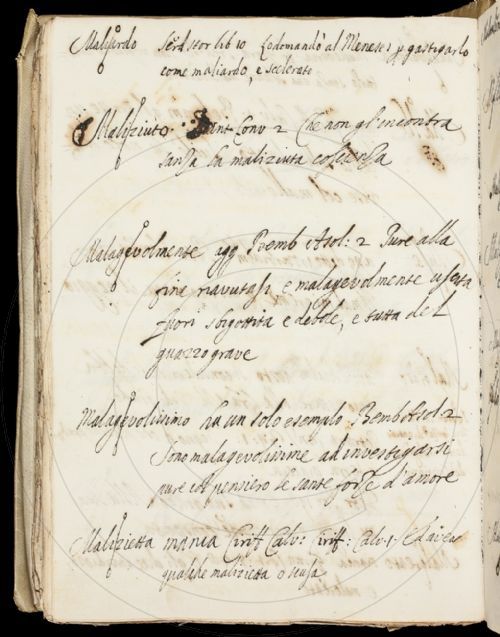 Maliardo Serd stor lib 10 Lo domandò al Meneses p gastigarlo
come maliardo, e scelerato
Malizïuto Dant Conv 2 Che non gl'encontra
sansa la maliziuta
Malagevolmente agg Bemb Asol: 2 Pure alla
fine riavutasi, e malagevolmente uscita
fuori sbigottita e debole, e tutta del
guazzo grave
Malagevolissimo ha un solo esemplo Bemb Asol: 2
Sono malagevolissime ad investigarsi
pure col pensiero le sante forze d'amore
Malizietta manca Ciriff Calv: Ciriff: Calv.
qualche malizietta o scusa